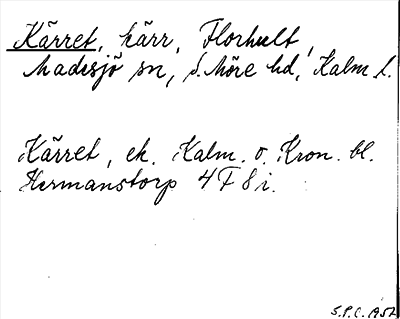 Kärret, kärr, Florhult,
Madesjö sn, S. Möre hd, Kalm. l.
Kärret, ek. Kalm. o. Kron. bl.
Hermanstorp 4 F 8 i.
S.P.C. 1952